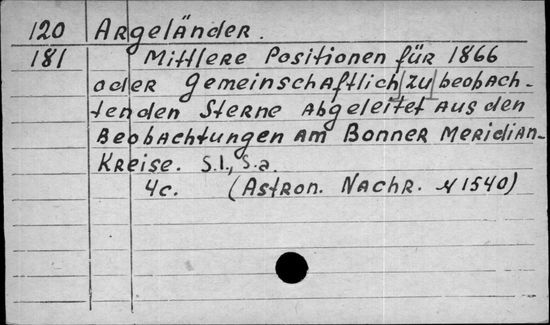 120 Argeländer.
181 Mittlere Positionen für 1866
oder gemeinschaftlich zu beobach-
tenden Sterne abgeleitet aus den
Beobachtungen am Bonner Meridian-
Kreise. S.l., s.a.
4c. (Astron. Nachr. N 1540)